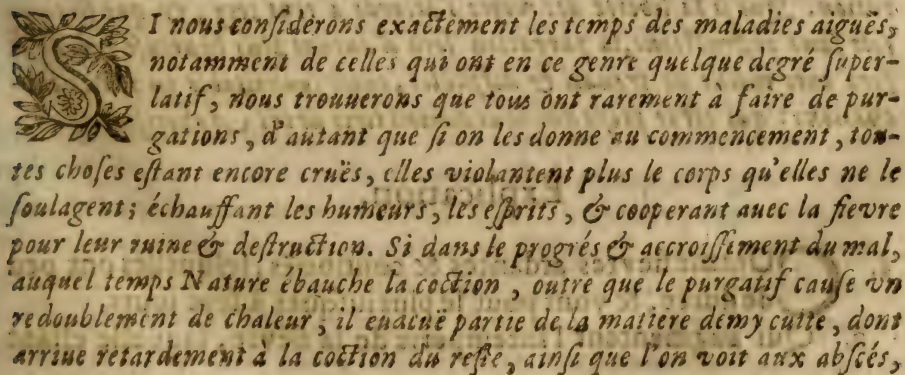 SI nous considerons exactement les temps des maladies aiguës,
notamment de celles qui ont en ce genre quelque degré super-
latif, nous trouuerons que tous ont rarement à faire de pur-
gations, d'autant que si on les donne au commencement, tou-
tes choses estant encore cruës, elles violantent plus le corps qu'elles ne le
soulagent; échauffant les humeurs, les esprits, & cooperant auec la fievre
pour leur ruine & destruction. Si dans le progrés & accroissement du mal,
auquel temps Nature ébauche la coction, outre que le purgatif cause vn
redoublement de chaleur, il euacuë partie de la matiere demy cuite, dont
arriue retardement à la coction du reste, ainsi que l'on voit aux abscés,